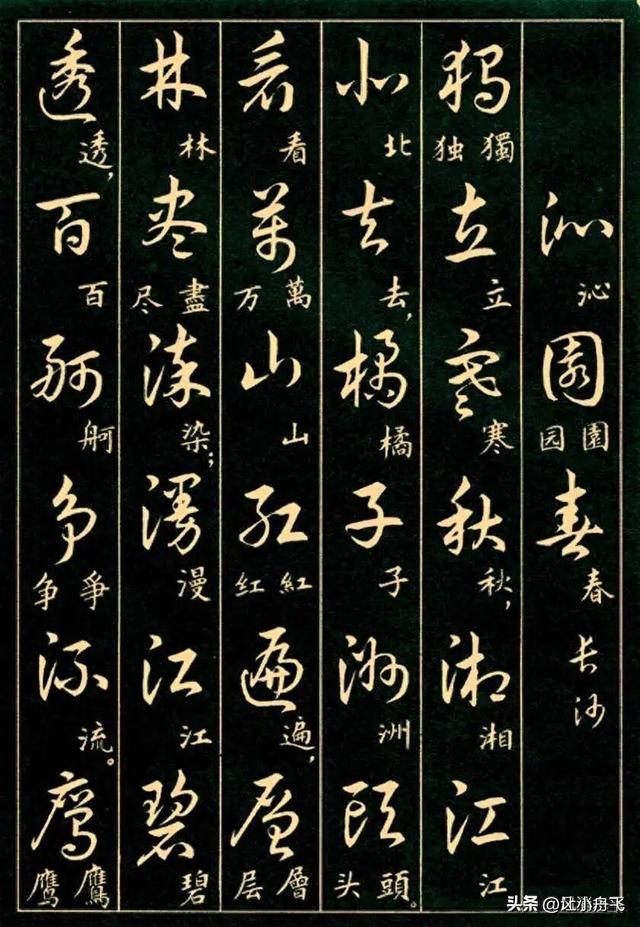 沁園春
沁 園 园 春 长沙
獨立寒秋湘江
獨 独 立 寒 秋, 湘 江
北去橘子洲頭
北 去, 橘 子 洲 頭 头。
看萬山紅遍層
看 萬 万 山 紅 红 遍, 層 层
林盡染漫江碧
林 盡 尽 染; 漫 江 碧
透百舸爭流鷹
透, 百 舸 爭 争 流。 鷹 鹰
头条